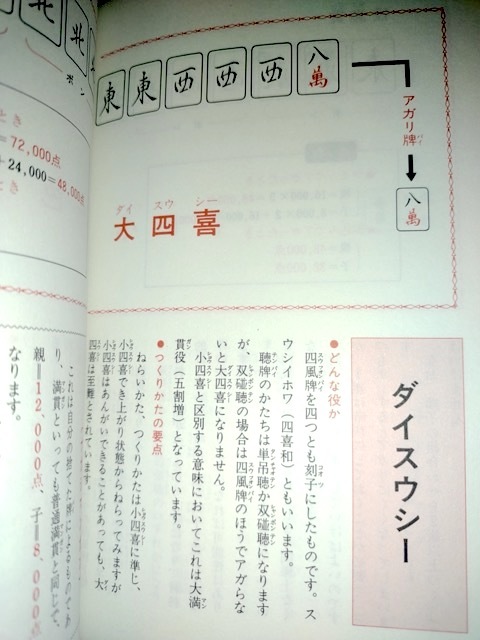 北
北
ポン
とき
=72,000点
+24,000=48,000点
とき
東 東 西 西 西 八萬
アガリ牌
八萬
ダイ スウ シー
大四喜
ダイスウシー
●どんな役か
四風牌を四つとも刻子にしたものです。ス
ウシイホワ（四喜和）ともいいます。
聴牌のかたちは単吊聴か双碰聴になります
が、双碰聴の場合は四風牌のほうでアガらな
いと大四喜になりません。
小四喜と区別する意味においてこれは大満
貫役（五割増）となっています。
●つくりかたの要点
ねらいかた、つくりかたは小四喜に準じ、
小四喜でき上がり状態からねらってみますが
小四喜はあんがいできることがあっても、大
四喜は至難とされています。
これは自分の捨てた牌によるものであ
り、満貫といっても普通満貫と同じで、
親＝12,000点、子＝8,000点
なります。